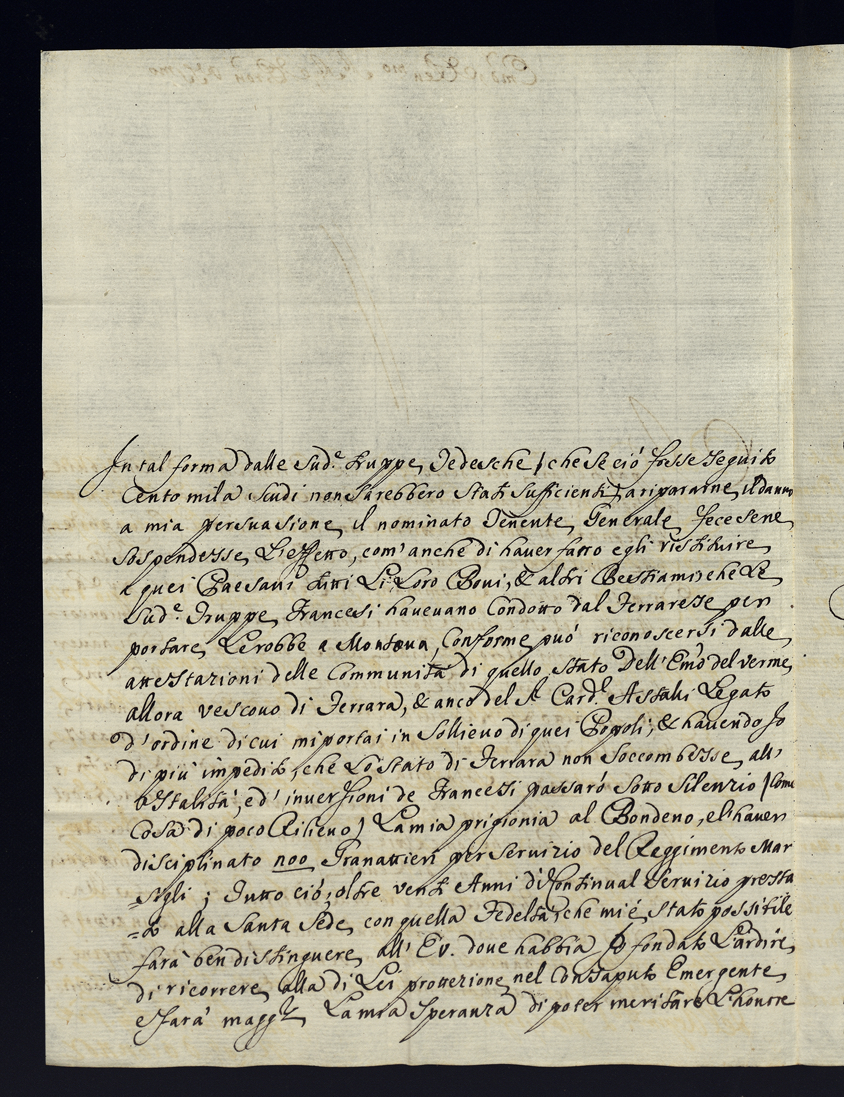 In tal forma dalle Sud.e Truppe Tedesche / che se ciò fosse seguito
Cento mila scudi non sarebbero stati sufficienti / a ripararne il danno
a mia persuasione il nominato Tenente Generale fece se ne
sospendesse L'effetto, com'anche di haver fatto egli ristituire
a quei Paesani tutti Li Loro Bovi, & altri Bestiami che Le
Sud.e Truppe Francesi havevano Condotto dal Ferrarese per
portare Le robbe a Mantova, Conforme può riconoscersi dalle
attestazioni delle Communità di quello stato Dell'Emo del verme
allora vescovo di Ferrara, & anco del Sr Card.l Astalli Legato
d'ordine di cui mi portai in sollievo di quei Popoli; & havendo Io
di più impedito, che Lo stato di Ferrara non soccombesse all'
ostalità, ed' inversioni de Francesi passarò sotto silenzio / come
Cosa di poco Rilievo / La mia prigionia al Bondeno, e l'haver
disciplinato noo Granattieri per servizio del Reggimento Mar
=sigli; Tutto ciò, oltre venti Anni di Continual servizio presta
=to alla Santa Sede con quella Fedeltà, che mi è stato possibile
farà ben distinguere all'Ev. dove habbia Io fondato L'ardire
di ricorrere alla di Lei protezione nel Consaputo Emergente
e sarà magg.re La mia speranza di poter meritare L'honore